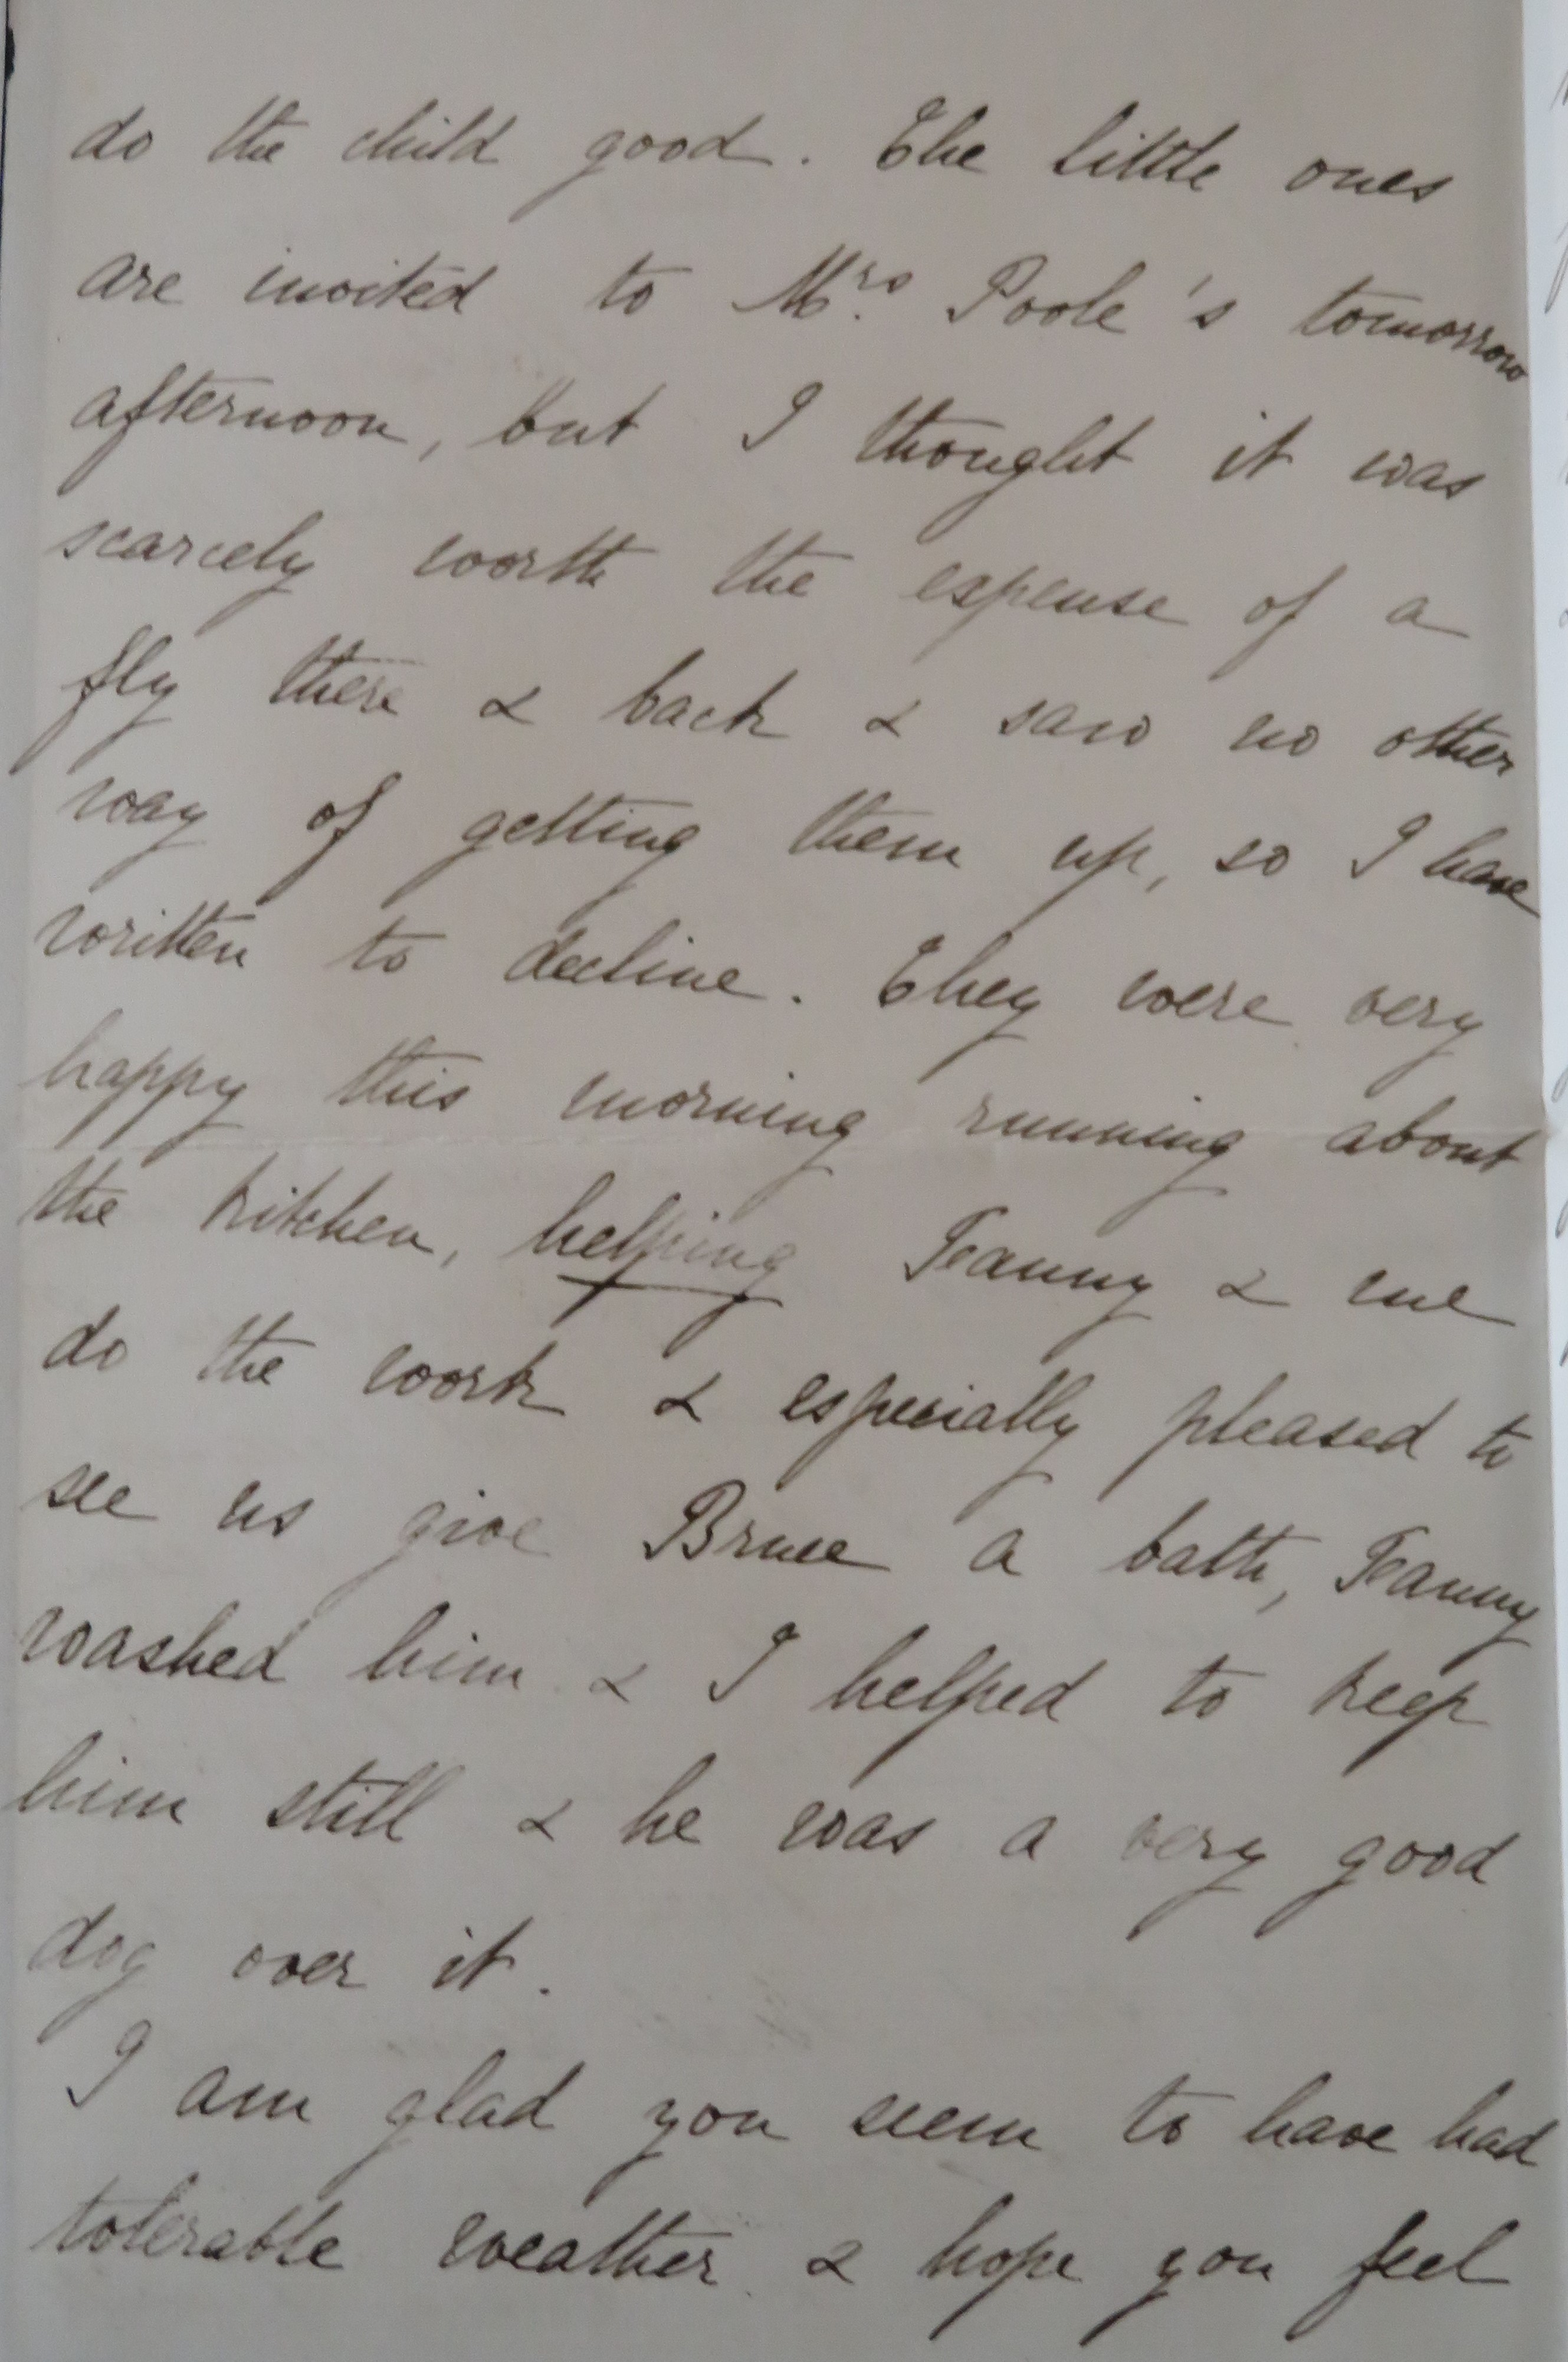 do the child good. The little ones
are invited to Mrs. Poole's tomorrow
afternoon, but I thought it was
scarcely worth the expense of a
fly there & back & saw no other
way of getting them up, so I have
written to decline. They were very
happy this morning running about
the kitchen, helping Fanny & me
do the work & especially pleased to
see us give Bruce a bath, Fanny
washed him & I helped to keep
him still & he was a very good
dog over it.
I am glad you seem to have had
tolerable weather & hope you feel